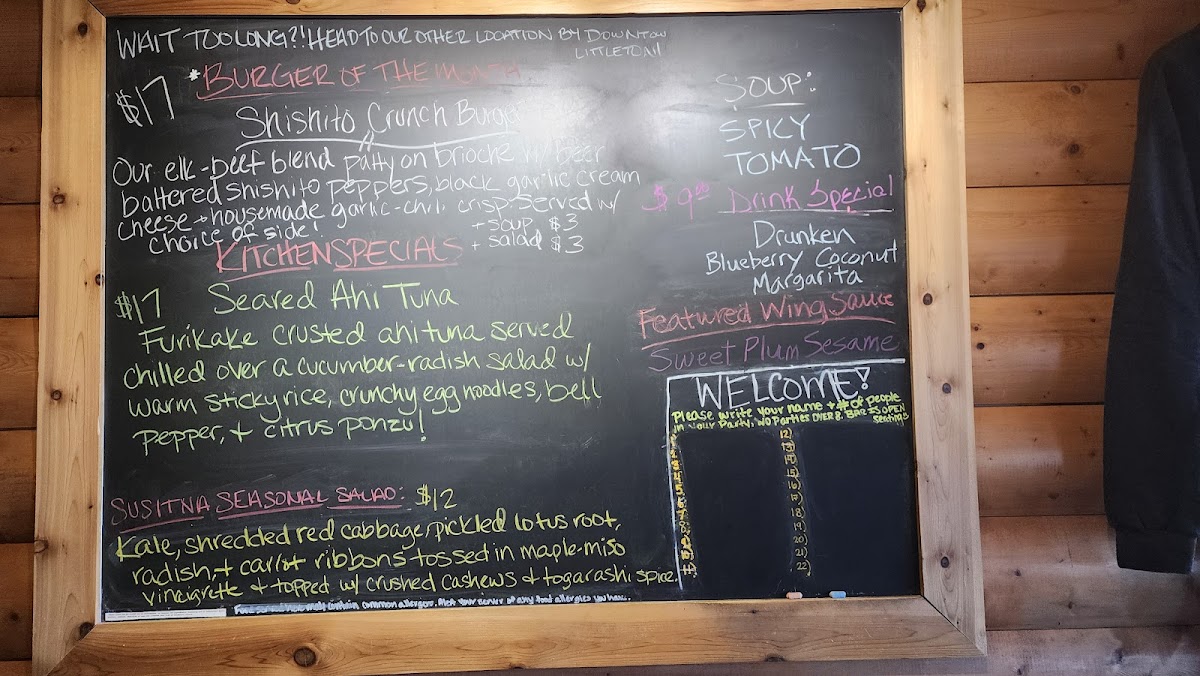 WAIT TOO LONG?! HEAD TO OUR OTHER LOCATION BY DOWNTOWN
LITTLETON!
$17 *BURGER OF THE MONTH
Shishito Crunch Burger
Our elk-beef blend patty on brioche w/ beer
battered shishito peppers, black garlic cream
cheese + housemade garlic-chili crisp. served w/
choice of side!
+ soup $3
+ salad $3
KITCHEN SPECIALS
$17 Seared Ahi Tuna
Furikake crusted ahi tuna served
chilled over a cucumber-radish salad w/
warm sticky rice, crunchy egg noodles, bell
pepper, + citrus ponzu!
SUSITNA SEASONAL SALAD: $12
Kale, shredded red cabbage, pickled lotus root,
radish, + carrot ribbons tossed in maple-miso
vinaigrette + topped w/ crushed cashews & togarashi spice.
SOUP:
SPICY
TOMATO
$9.00 Drink Special
Drunken
Blueberry Coconut
Margarita
Featured Wing Sauce
Sweet Plum Sesame
WELCOME!
Please write your name + # of people
in your Party, NO PARTIES OVER 8. BAR IS OPEN
seating
12)
13)
14)
15)
16)
17)
18)
19)
20)
21)
22)